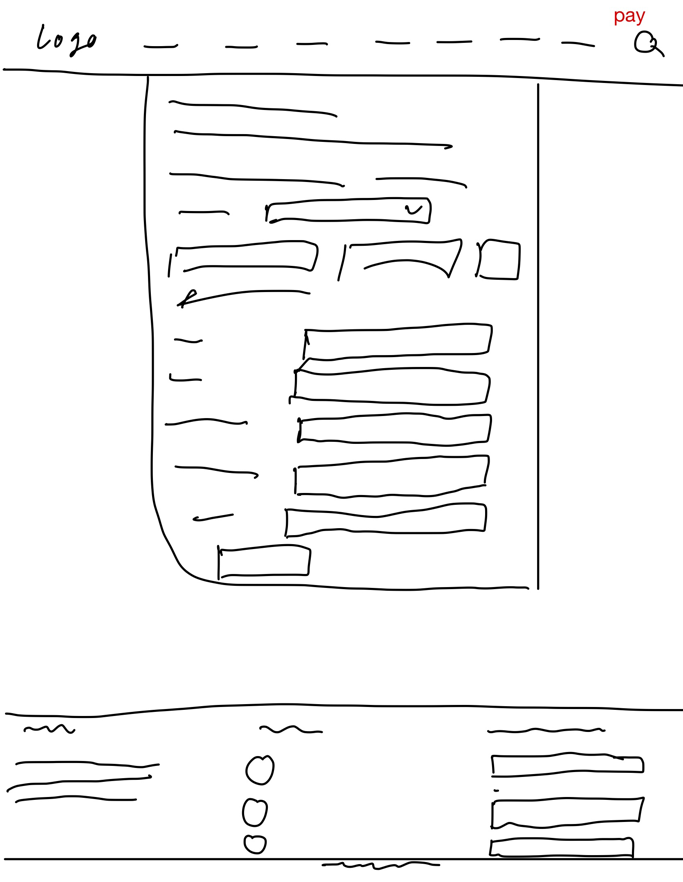 pay
Logo